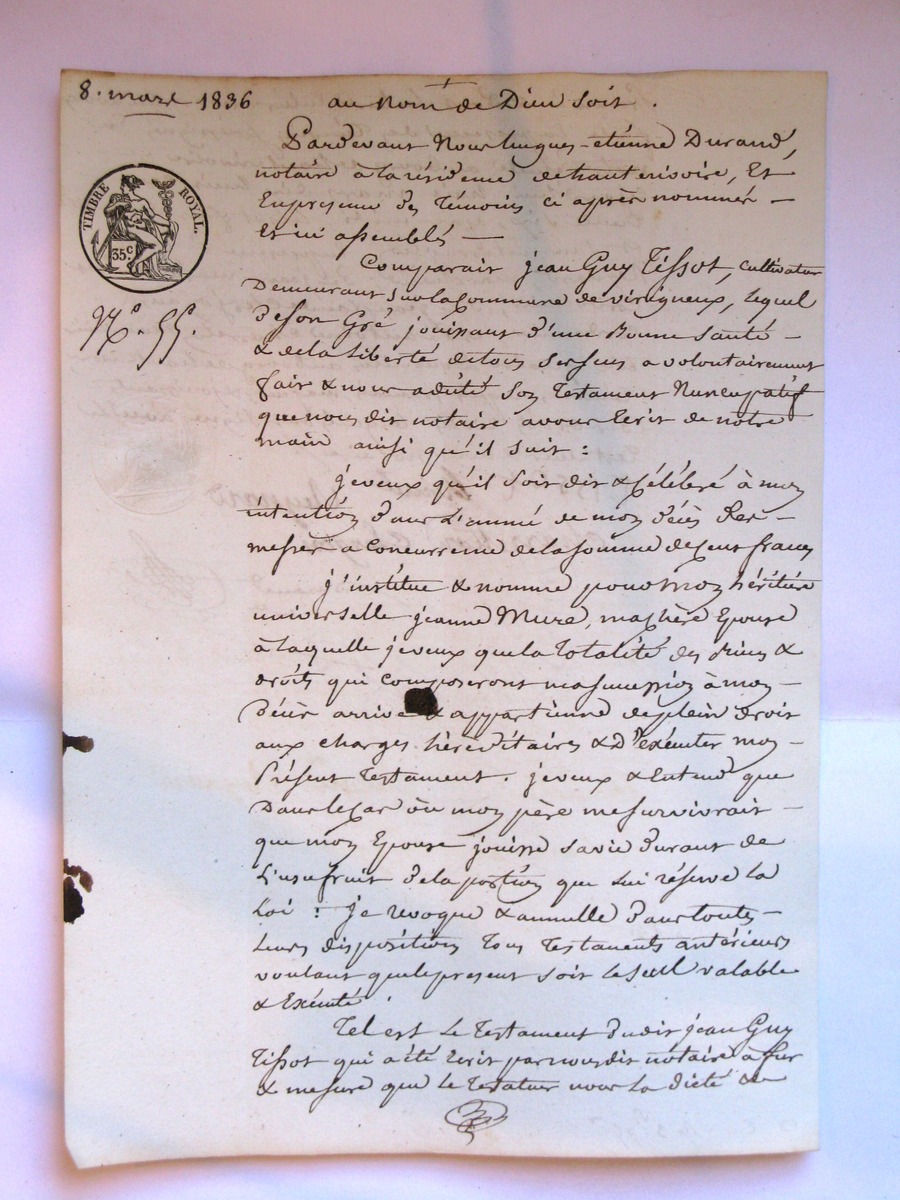 8. mars 1836
au Nom de Dieu soit.
TIMBRE ROYAL.
35.c
No. 55.
Pardevant Nous hugues-etienne Durand,
notaire à la résidence de hauterivoire, Et
En presence des Témoins ci après nommés
Et ici assemblés
Comparait jean Guy Tissot, cultivateur
Demeurant sur la Commune de virigneux, lequel
de son Gré jouissant d'une Bonne Santé
& de la Liberté de tous ses sens a volontairement
fait & nous a dicté son Testament Nuncupatif
que nous dit notaire avons Ecrit de notre
main ainsi qu'il suit :
je veux qu'il soit dit & Célébré à mon
intention dans L'année de mon décès Des
messes a Concurrence de la somme de Cent francs
j'institue & nomme pour mon héritière
universelle jeanne Mure, ma chère Epouse
à laquelle je veux que la Totalité des biens &
droits qui composeront ma succession à mon
décès arrive & appartienne de plein droit
aux charges héréditaires & D'exécuter mon
Présent Testament. je veux & Entend que
Dans le Cas où mon père me survivrait
que mon Epouse jouisse sa vie durant de
L'usufruit de la portion que lui réserve la
Loi : je revoque & annulle dans toutes
Leurs dispositions Tous Testaments antérieurs
voulant que le present soit le seul valable
& Exécuté.
Tel est Le Testament dudit jean Guy
Tissot qui a été Ecrit par nous dit notaire à fur
& mesure que le Testateur nous La dicté de